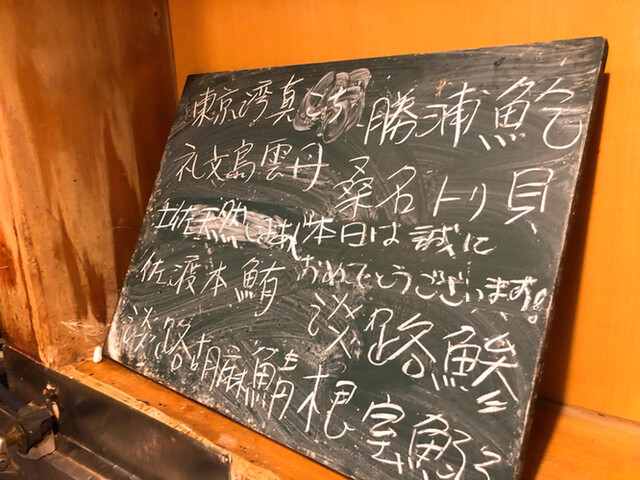 東京湾真こち 勝浦鮑
礼文島雲丹 桑名トリ貝
土佐天然しまあじ 本日は誠に
おめでとうございます!
佐渡本鮪 淡路鯵
淡路胡麻鯖 根室